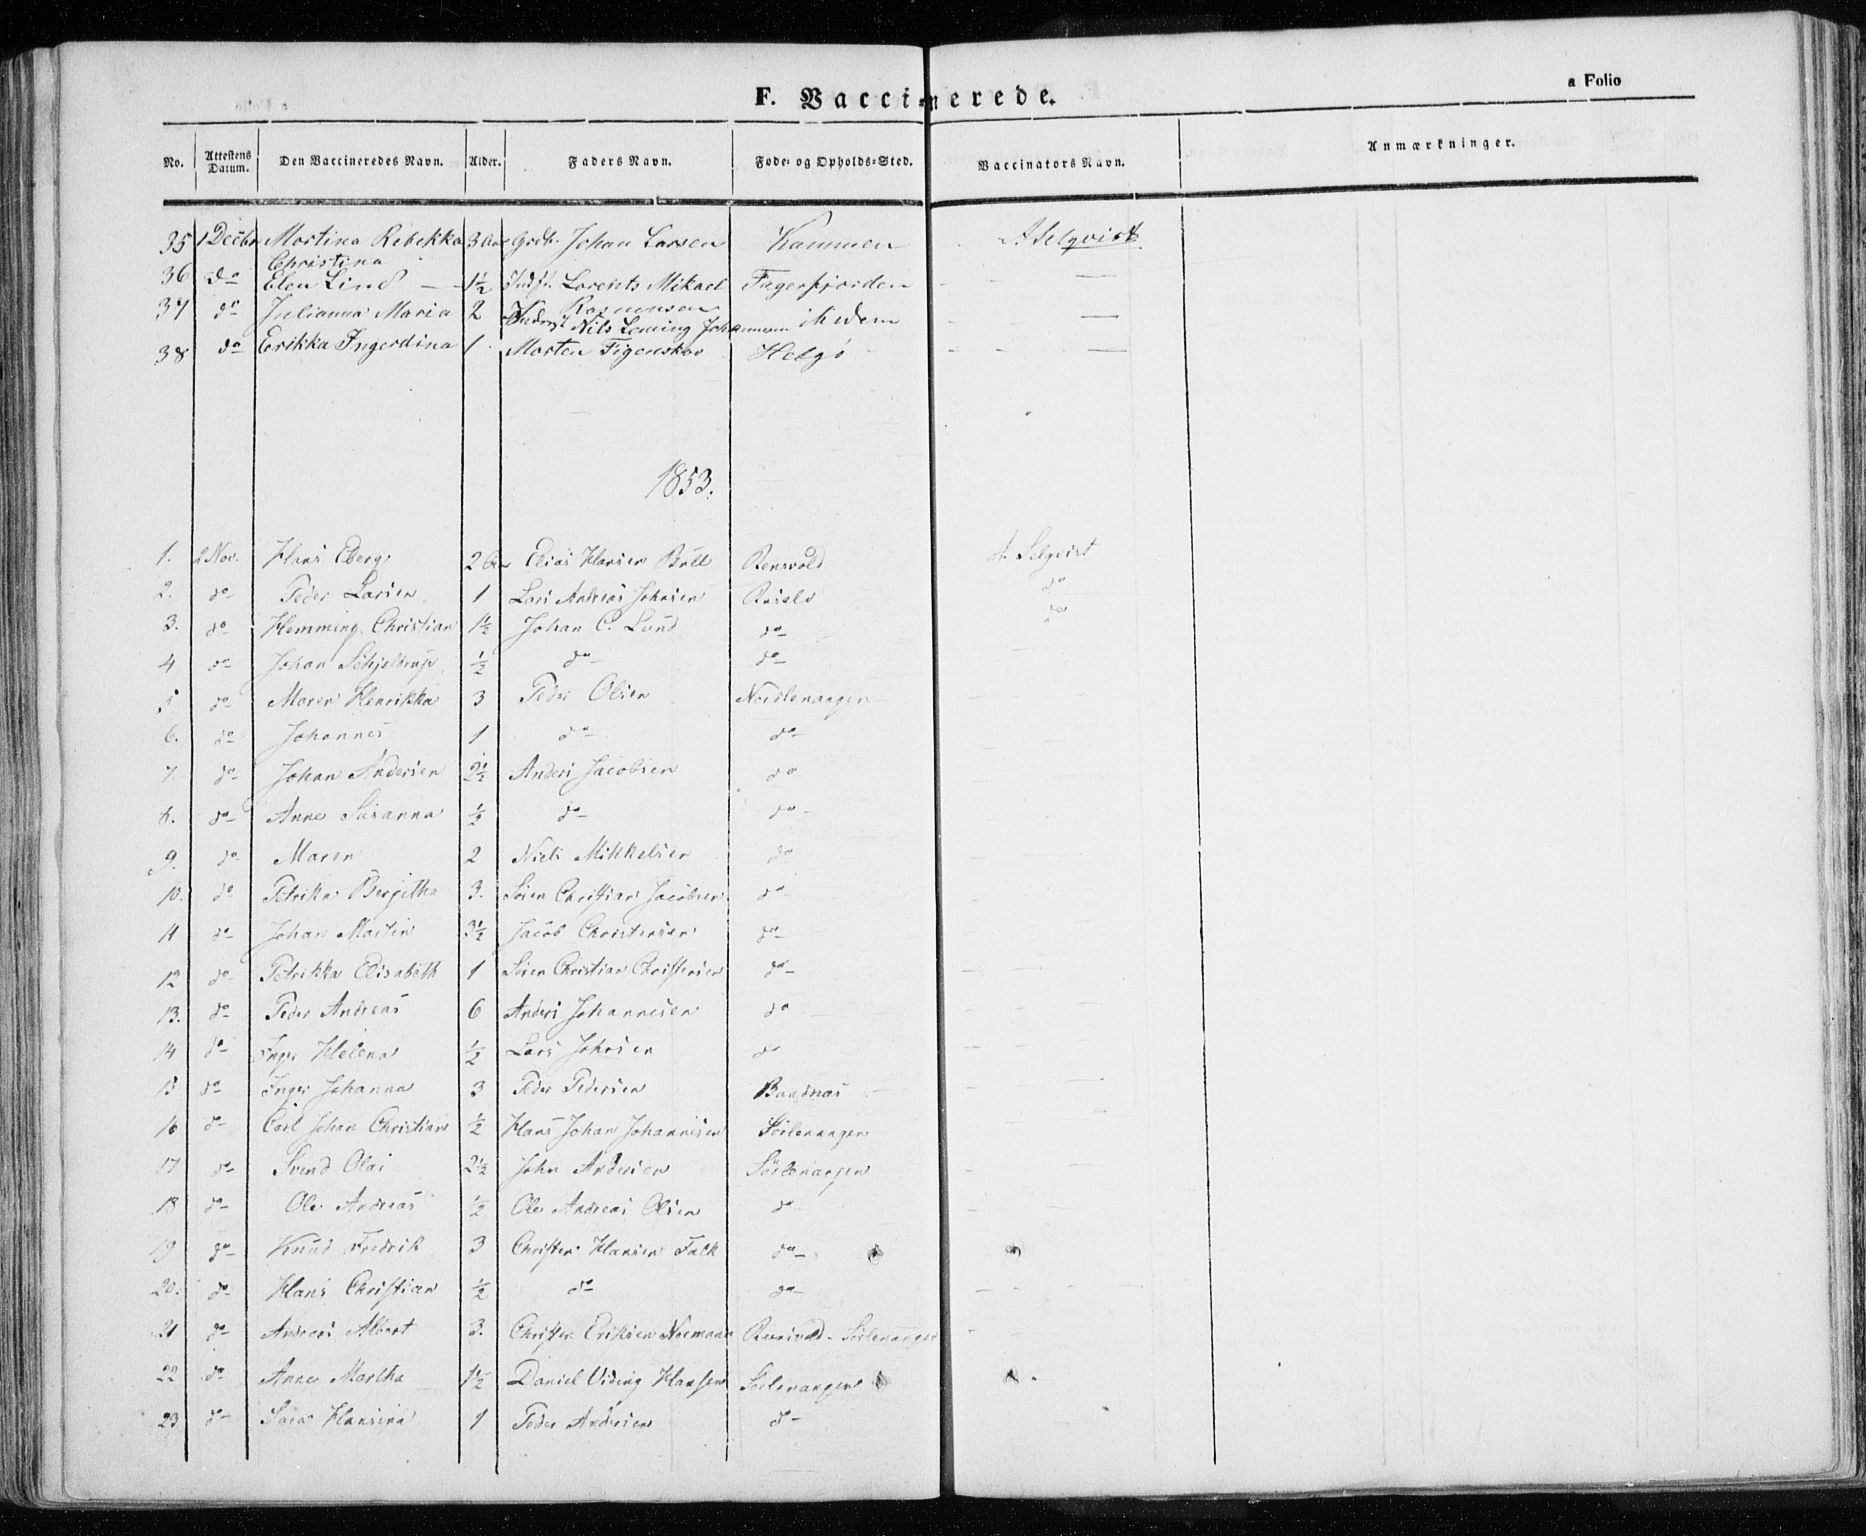 a Folio
F. Vaccinerede.
No. Attestens Datum. Den Vaccineredes Navn. Alder. Faders Navn. Føde- og Opholds-Sted. Vaccinators Navn. Anmærkninger.
35 1 Decbr Martina Rebekka Christina 3 Aar Grdr. Johan Larsen Kammen A Selqvist
36 do Elen Lind 1½ Lorents Mikael Rasmussen Fugerfjorden
37 do Julianna Maria 2 Nils Leming Johannesen ibidem
38 do Erikka Ingerdina 1 Morten Figenskov Helgö
1853.
1. 2 Nov. Hans Eberg 2 Aar Elias Hansen Bull Rensvold A. Selqvist
2. do Peder Larsen 1 Lars Andreas Johnsen do
3. do Hemming Christian 1½ Johan C. Lund do do
4 do Johan Schjeldrup ½ do do
5 do Maren Henrikka 3 Peder Olsen Nordlenangen
6. do Johannes 1 do do
7. do Johan Andersen 2½ Anders Jacobsen do
8. do Anne Susanna ½ do do
9. do Maren 2 Niels Mikkelsen do
10. do Petrika Bergitha 3. Sören Christian Jacobsen do
11 do Johan Martin 3½ Jacob Christensen do
12 do Petrikka Elisabeth 1 Sören Christian Christensen do
13. do Peder Andreas 6 Anders Johannesen do
14 do Inger Helena ½ Lars Johnsen do
15 do Inger Johanna 3 Peder Pedersen Baadnæs
16 do Carl Johan Christian ½ Hans Johan Johannesen Sörlenangen
17 do Svend Olai 2½ John Andersen Sörlenangen
18 do Ole Andreas ½ Ole Andreas Olsen do
19 do Knud Fredrik 3 Christen Hansen Falk do
20. do Hans Christian ½ do do
21 do Anders Albert 3. Christen Eriksen Normann Rensvold - Sörlenangen
22 do Anne Martha 1½ Daniel Viding Hansen Sörlenangen
23 do Sara Hansina 1 Peder Andersen do